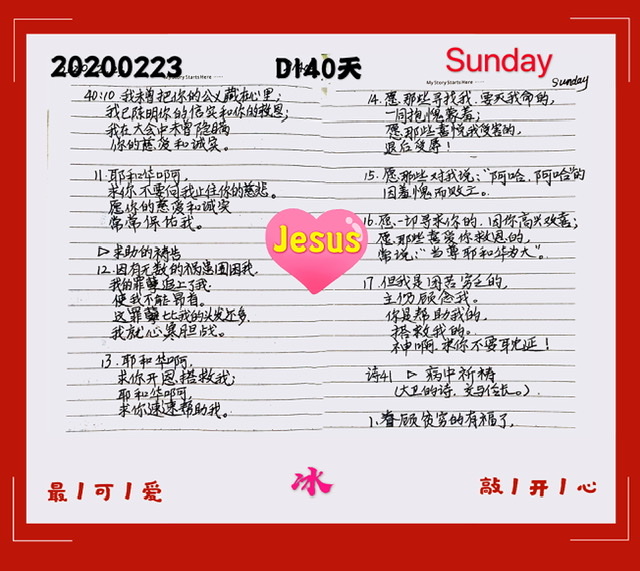 20200223
DI40天
Sunday
My Story Starts Here
My Story Starts Here
Sunday
40:10 我未曾把你的公义藏在心里;
我已陈明你的信实和你的救恩;
我在大会中未曾隐瞒
你的慈爱和诚实。
11. 耶和华啊,
求你不要向我止住你的慈悲。
愿你的慈爱和诚实
常常保佑我。
▷求助的祷告
12. 因有无数的祸患围困我,
我的罪孽追上了我,
使我不能昂首。
这罪孽比我的头发还多,
我就心寒胆战。
13. 耶和华啊,
求你开恩搭救我;
耶和华啊,
求你速速帮助我。
14. 愿那些寻找我、要灭我命的,
一同抱愧蒙羞;
愿那些喜悦我受害的,
退后受辱!
15. 愿那些对我说:“阿哈、阿哈”的
因羞愧而败亡。
16. 愿一切寻求你的,因你高兴欢喜;
愿那些喜爱你救恩的,
常说:“当尊耶和华为大”。
17. 但我是困苦穷乏的,
主仍顾念我。
你是帮助我的,
搭救我的。
神啊,求你不要耽延!
诗41 ▷ 病中祈祷
(大卫的诗,交与伶长。)
1. 眷顾贫穷的有福了,
Jesus
最丨可丨爱
冰
敲丨开丨心